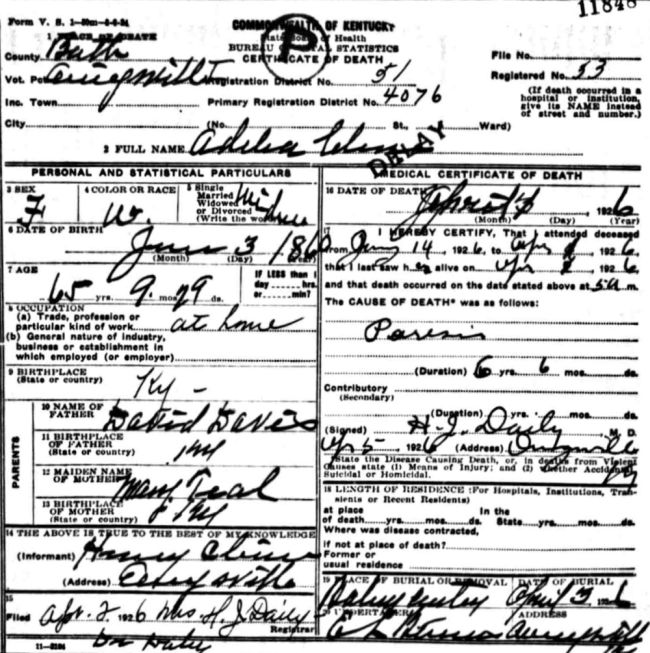 11848
Form V. S. 1-50m-5-6-24
COMMONWEALTH OF KENTUCKY
State Board of Health
BUREAU OF VITAL STATISTICS
CERTIFICATE OF DEATH
P
1 PLACE OF DEATH
County Bath
Vot. Pct. Registration District No. 51
File No.
Registered No. 53
Inc. Town Primary Registration District No. 4076
(If death occurred in a hospital or institution, give its NAME instead of street and number.)
City (No. St., Ward)
2 FULL NAME
DELAY
PERSONAL AND STATISTICAL PARTICULARS
3 SEX F
4 COLOR OR RACE W.
5 Single Married Widowed or Divorced (Write the word)
6 DATE OF BIRTH June 3 1860
(Month) (Day) (Year)
7 AGE 65 yrs. 9 mos. 29 ds.
IF LESS than 1 day hrs. or min?
8 OCCUPATION
(a) Trade, profession or particular kind of work at home
(b) General nature of industry, business or establishment in which employed (or employer)
9 BIRTHPLACE (State or country) Ky -
PARENTS
10 NAME OF FATHER David Davis
11 BIRTHPLACE OF FATHER (State or country) Ky
12 MAIDEN NAME OF MOTHER Mary Teal
13 BIRTHPLACE OF MOTHER (State or country) Ky
14 THE ABOVE IS TRUE TO THE BEST OF MY KNOWLEDGE
(Informant) Henry
(Address)
15 Filed Apr. 2 1926 Mrs H. J. Daily
Registrar
11-3184
MEDICAL CERTIFICATE OF DEATH
16 DATE OF DEATH 1926
(Month) (Day) (Year)
17 I HEREBY CERTIFY, That I attended deceased
from 14, 1926, to Apr, 1926,
that I last saw her alive on Apr, 1926
and that death occurred on the date stated above at 5 a m.
The CAUSE OF DEATH* was as follows:
Paresis
(Duration) 6 yrs. 6 mos. ds.
Contributory
(Secondary)
(Duration) yrs. mos. ds.
(Signed) H. J. Daily M. D.
1926 (Address) Ky
*State the Disease Causing Death, or, in deaths from Violent Causes state (1) Means of Injury; and (2) whether Accidental, Suicidal or Homicidal.
18 LENGTH OF RESIDENCE (For Hospitals, Institutions, Transients or Recent Residents)
at place of death yrs. mos. ds. In the State yrs. mos. ds.
Where was disease contracted,
if not at place of death?
Former or usual residence
19 PLACE OF BURIAL OR REMOVAL DATE OF BURIAL
April 3 1926
20 UNDERTAKER ADDRESS